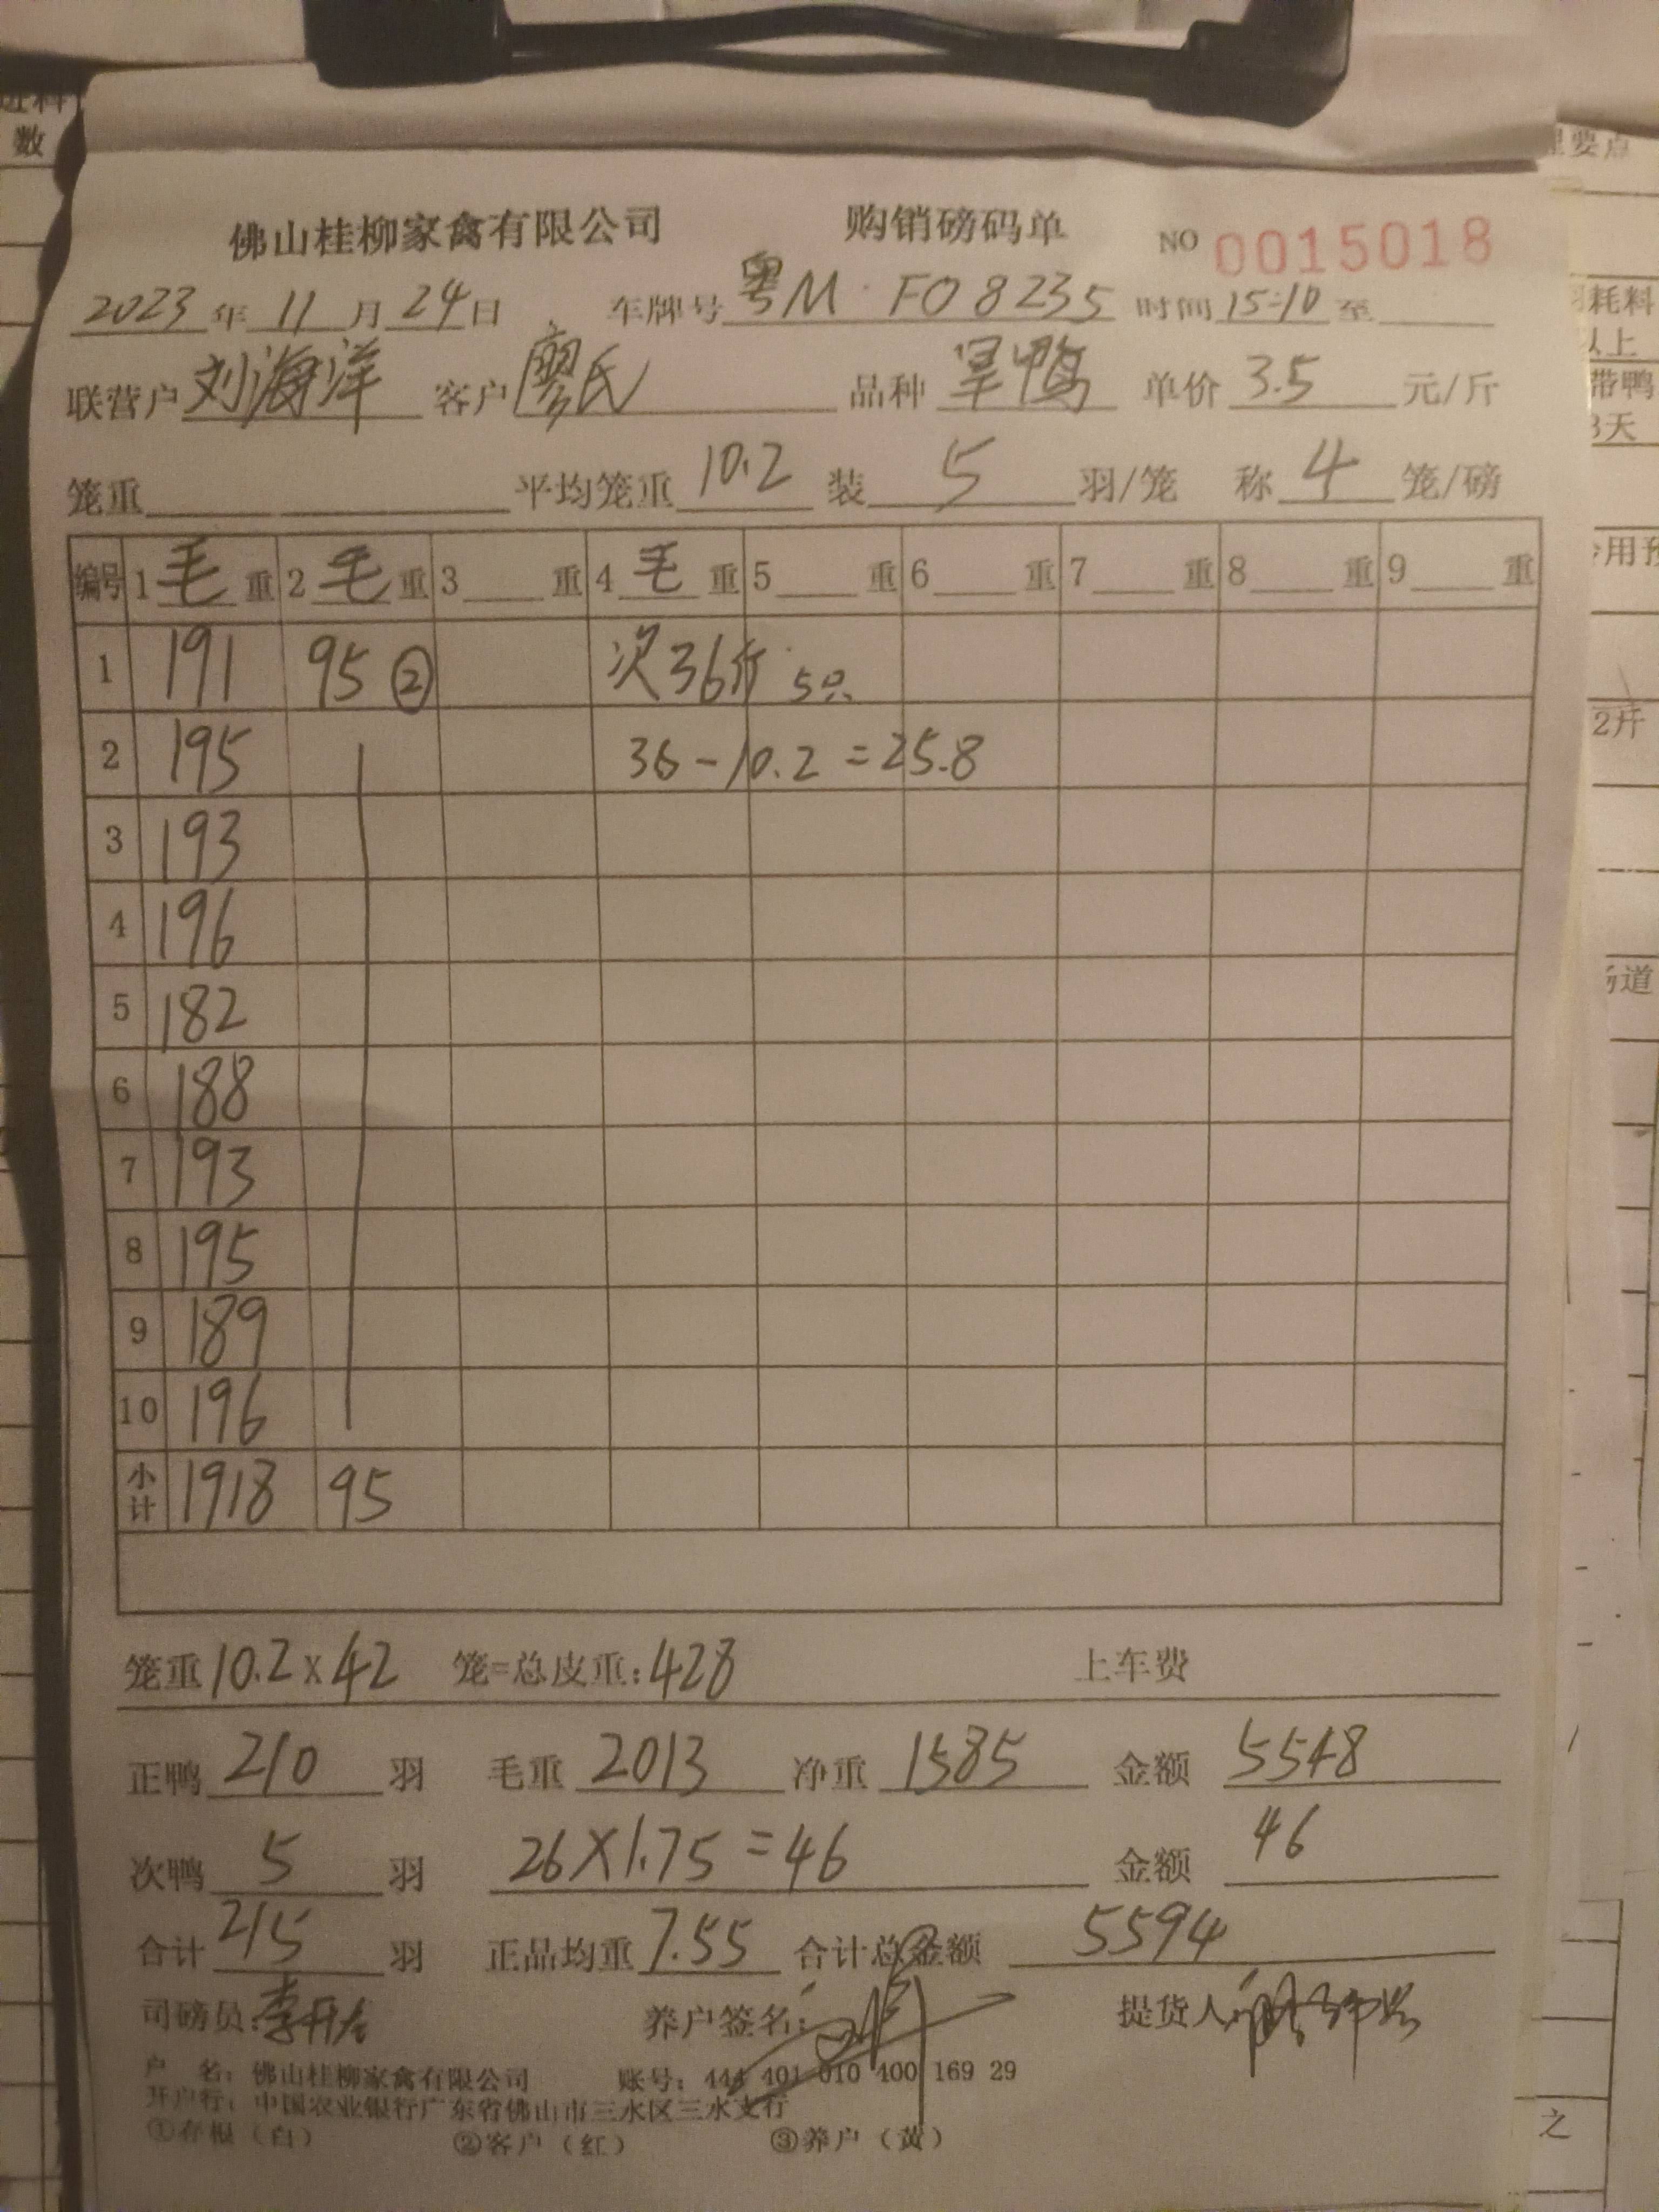 佛山桂柳家禽有限公司 购销磅码单 NO 0015018
2023年11月24日 车牌号粤M·F08235 时间15:10至
联营户刘海洋 客户廖氏 品种旱鸭 单价3.5元/斤
笼重 平均笼重10.2 装5羽/笼 称4笼/磅
编号 1毛重 2毛重 3重 4毛重 5重 6重 7重 8重 9重
1 191 95② 次36斤 5只
2 195 36-10.2=25.8
3 193
4 196
5 182
6 188
7 193
8 195
9 189
10 196
小计 1918 95
笼重10.2×42 笼=总皮重:428 上车费
正鸭210羽 毛重2013 净重1585 金额5548
次鸭5羽 26×1.75=46 金额46
合计215羽 正品均重7.55 合计总金额5594
司磅员: 养户签名: 提货人
户 名:佛山桂柳家禽有限公司 账号:444 401 010 400 169 29
开户行:中国农业银行广东省佛山市三水区三水支行
①存根(白) ②客户(红) ③养户(黄)
数
理要点
耗料
以上
带鸭
3天
用预
2斤
道
之